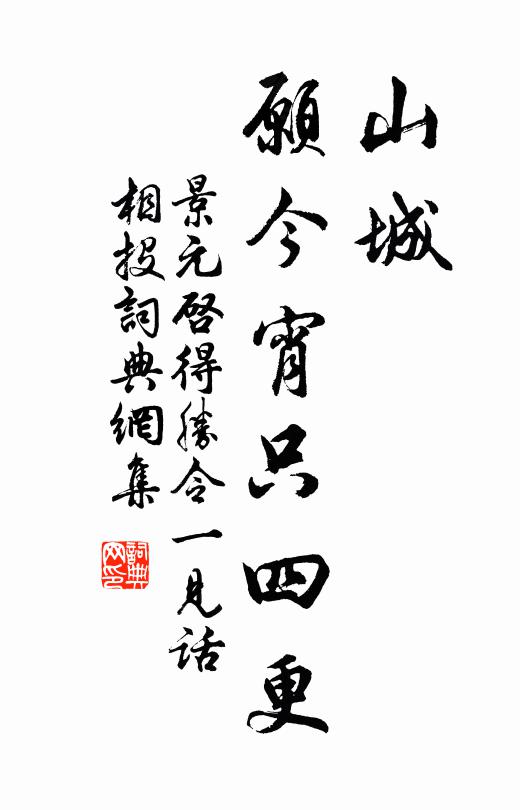 山城
願今宵只四更
景元啓得勝令一見話
相投詞典網集
詞典
网印